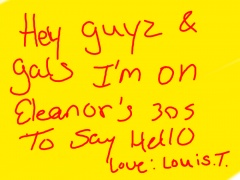 Hey guyz &
gals I'm on
Eleanor's 3Ds
To Say Hello
Love: Louis.T.